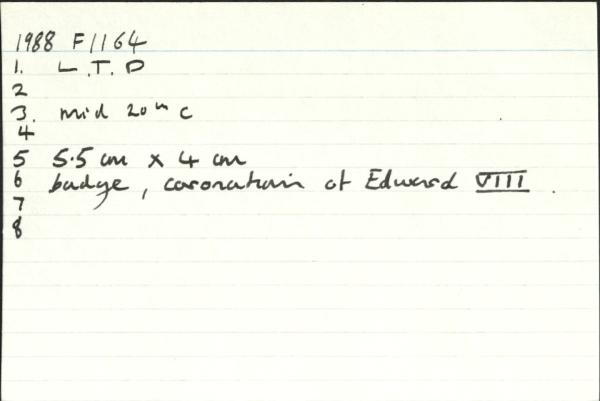 1988 F1164
1. L.T.D
2
3. mid 20th C
4
5 5.5 cm x 4 cm
6 badge, coronation of Edward VIII.
7
8